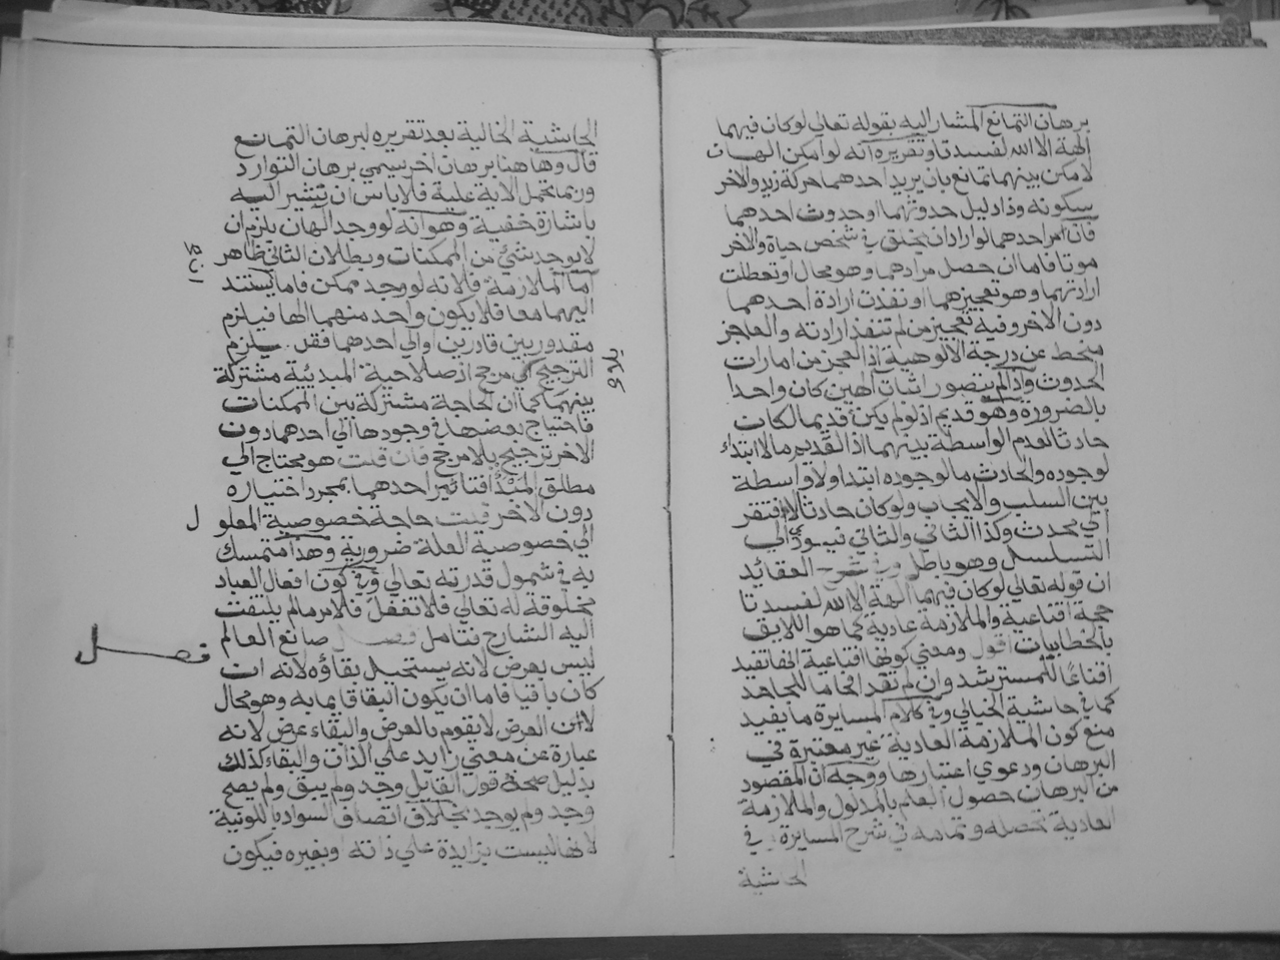 برهان التمانع المشار اليه بقوله تعالي لوكان فيهما
الهة الا الله لفسدتا وتقريره انه لو امكن الهان
لامكن بينهما تمانع بان يريد احدهما حركة زيد والاخر
سكونه وذا دليل حدوثهما او حدوث احدهما
فان احدهما لو اراد ان يخلق في شخص حياة والاخر
موتا فاما ان حصل مرادهما وهو محال او تعطلت
ارادتهما وهو تعجيزهما او نفذت ارادة احدهما
دون الاخر وفيه تعجيز من لم تنفذ ارادته والعاجز
منحط عن درجة الالوهية اذ العجز من امارات
الحدوث واذا لم يتصور اثبات الهين كان واحدا
بالضرورة وهو قديم اذ لو لم يكن قديما لكان
حادثا لعدم الواسطة بينهما اذ القديم ما لا ابتداء
لوجوده والحادث ما لوجوده ابتدا ولا واسطة
بين السلب والايجاب ولو كان حادثا لافتقر
الي محدث وكذا الثاني والثالي فيودي الي
التسلسل وهو باطل وفي شرح العقائد
ان قوله تعالي لوكان فيهما الهة الا الله لفسدتا
حجة اقناعية والملازمة عادية كما هو اللايق
بالخطابيات اقول ومعني كونها اقناعية انها تفيد
اقناعا للمسترشد وان لم تفد افحاما للجاهد
كما في حاشية الخيالي وفي كلام المسايرة ما يفيد
منع كون الملازمة العادية غير معتبرة في
البرهان ودعوي اعتبارها ووجه ان المقصود
من البرهان حصول العلم بالمدلول والملازمة
العادية تحصله وتمامه في شرح المسايرة في
الحاشية
الحاشية الخالية بعد تقريره لبرهان التمانع
قال وهاهنا برهان اخر يسمي برهان التوارد
وربما تحمل الاية علية فلا باس ان نشير اليه
باشارة خفية وهو انه لو وجد الهان يلزم ان
لا يوجد شيء من الممكنات وبطلان الثاني ظاهر
اما الملازمة فلانه لو وجد ممكن فاما يستند
اليهما معا فلا يكون واحد منهما الها فيلزم
مقدور بين قادرين او الي احدهما فقط يلزم
الترجيح من غير مرجح اذ صلاحية المبدئية مشتركة
بينهما كما ان الحاجة مشتركة بين الممكنات
فاحتياج بعضها في وجودها الي احدهما دون
الاخر ترجيح بلا مرجح فان قلت هو محتاج الي
مطلق المبدأ فتاثير احدهما بمجرد اختياره
دون الاخر قلت حاجة خصوصية المعلول
الي خصوصية العلة ضرورية وهذا متمسك
به في شمول قدرته تعالي وفي كون افعال العباد
مخلوقة له تعالي فلا تغفل فلامر ما لم يلتفت
اليه الشارح فتامل فصل صانع العالم
فصل
ليس بعرض لانه يستحيل بقاؤه لانه ان
كان باقيا فاما ان يكون البقا قايما به وهو محال
لان العرض لا يقوم بالعرض والبقاء عرض لانه
عبارة عن معني زايد علي الذات والبقاء كذلك
بدليل صحة قول القايل وجد ولم يبق ولم يصح
وجد ولم يوجد بخلاف اتصاف السواد باللونية
لانها ليست بزايدة علي ذاته او بغيره فيكون